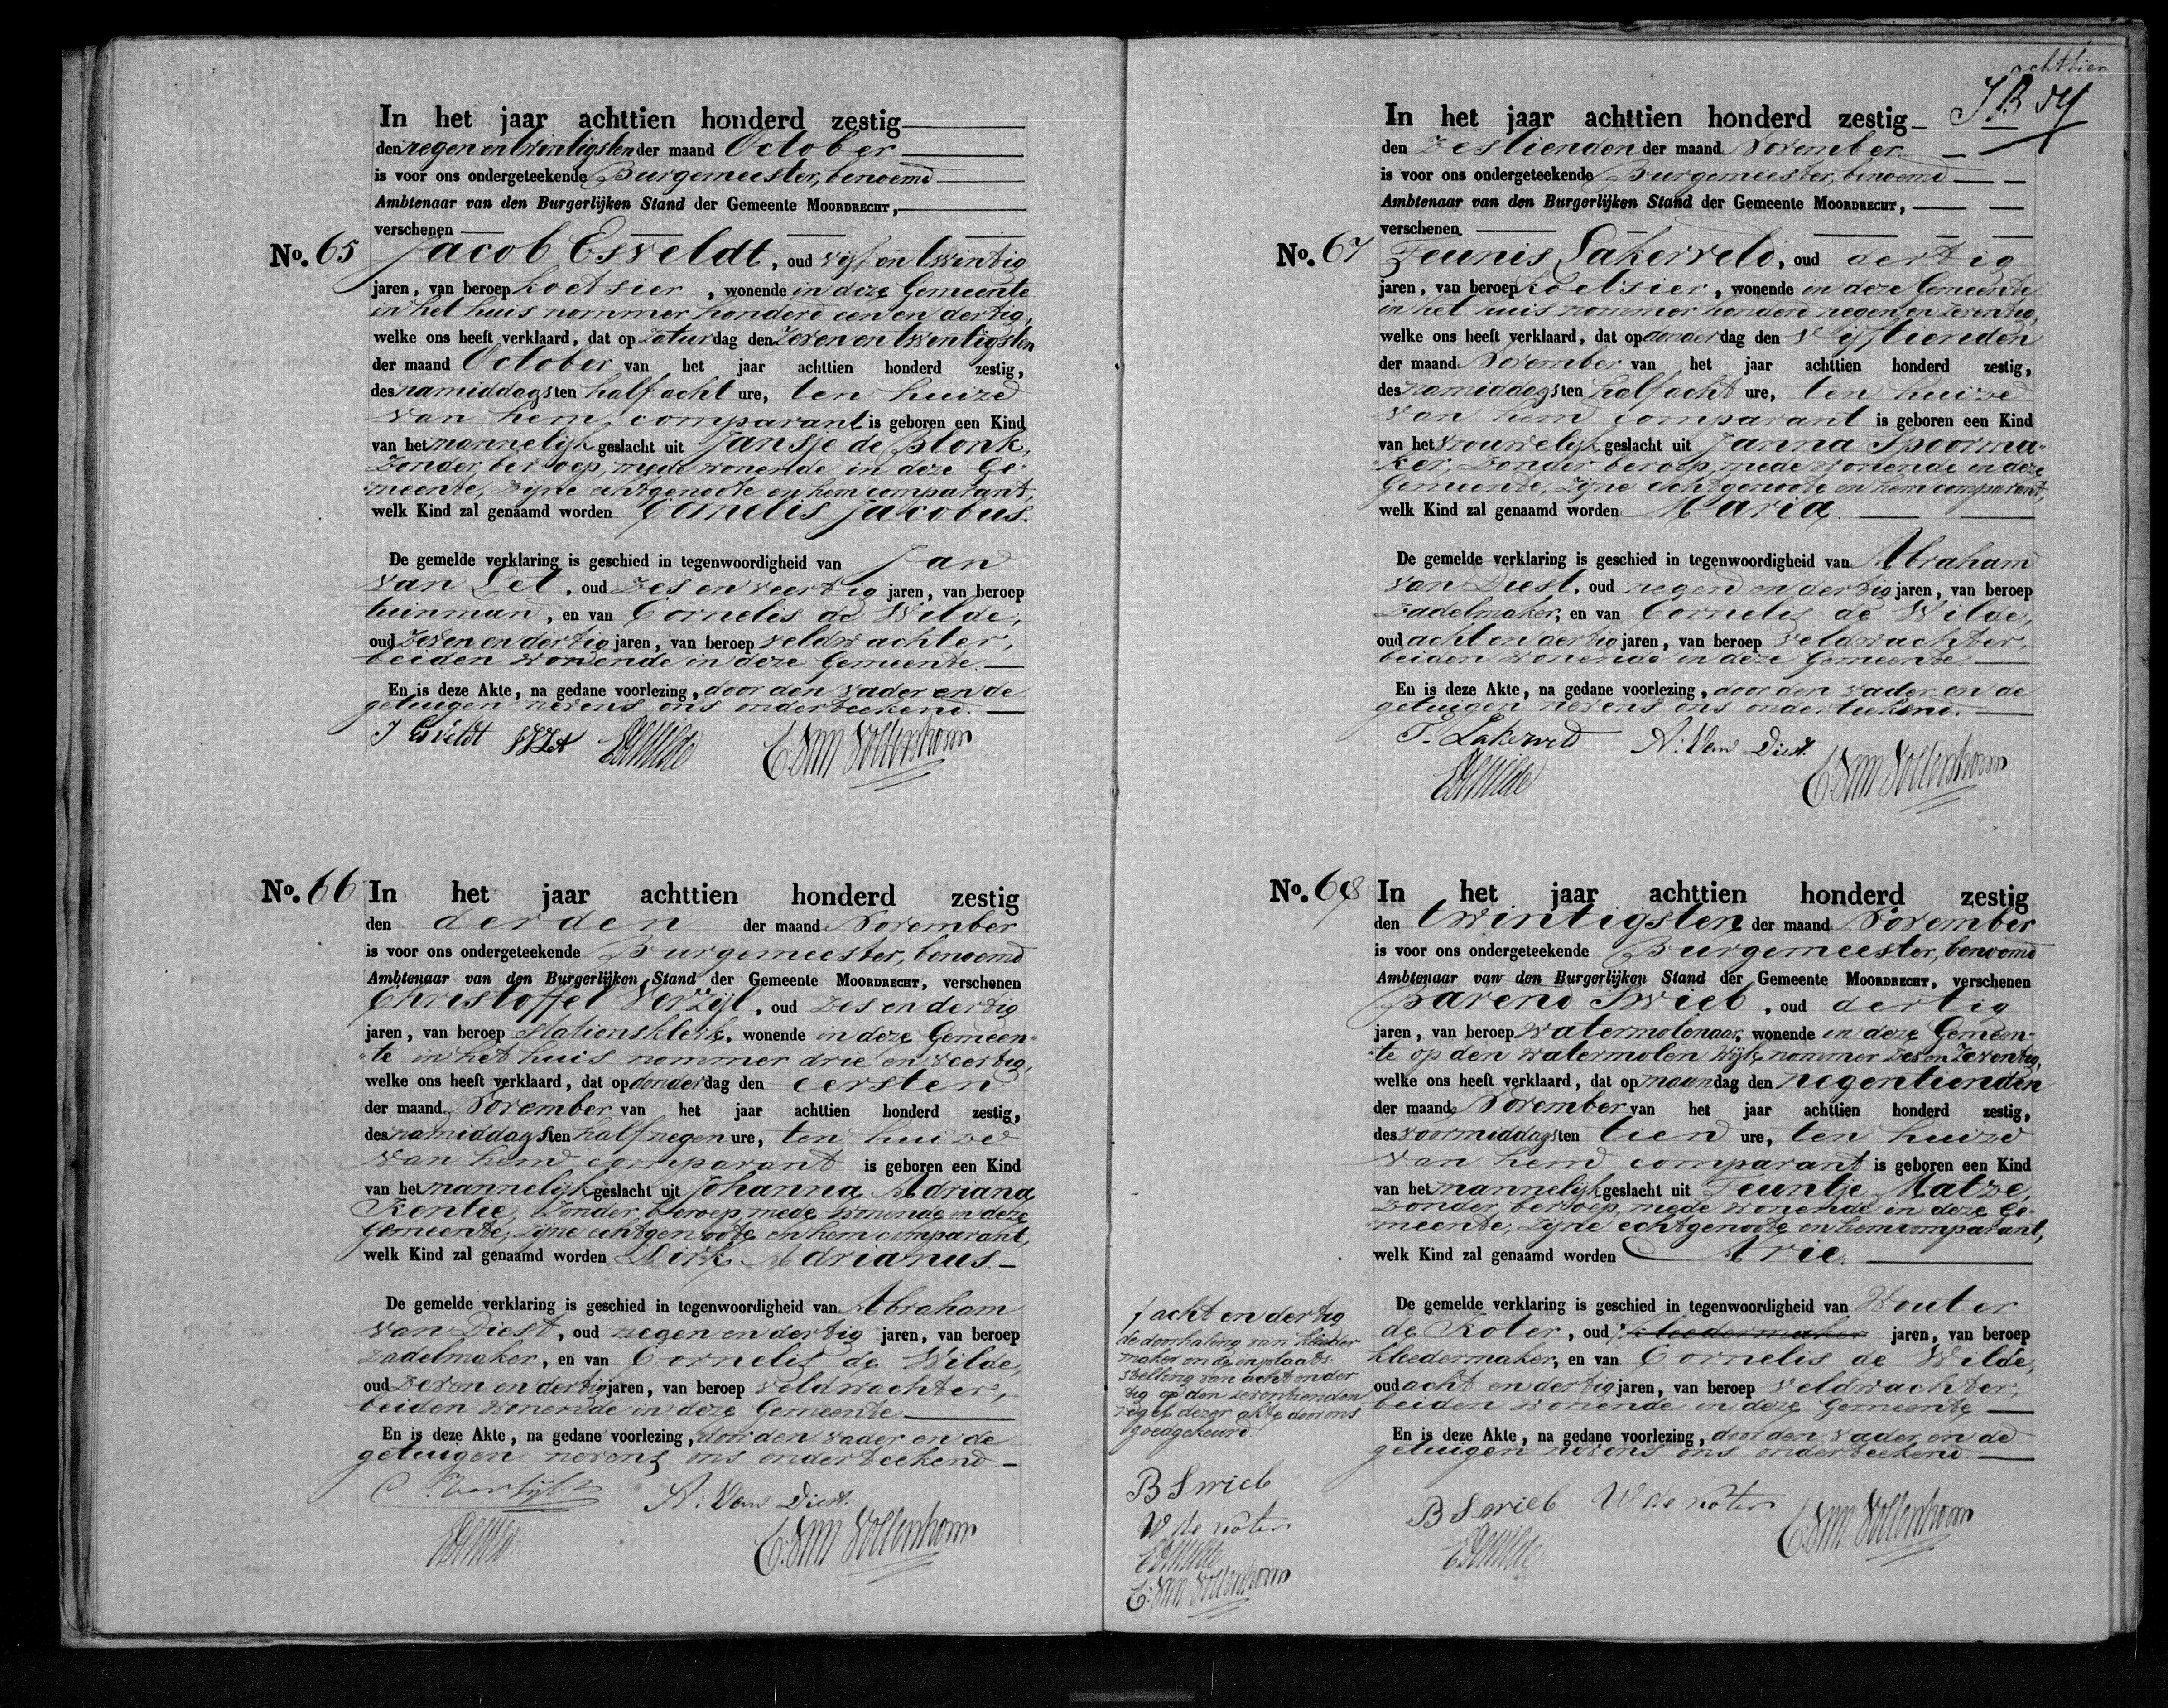 In het jaar achttien honderd zestig
den negen en twintigsten der maand October
is voor ons ondergeteekende Burgemeester, benoemd
Ambtenaar van den Burgerlijken Stand der Gemeente MOORDRECHT,
verschenen
No. 65 Jacob Esveldt, oud vijf en twintig
jaren, van beroep koetsier, wonende in deze Gemeente
in het huis nommer honderd een en dertig,
welke ons heeft verklaard, dat op Zaturdag den Zeven en twentigsten
der maand October van het jaar achttien honderd zestig,
des namiddags ten half acht ure, ten huize
van hem comparant is geboren een Kind
van het mannelijk geslacht uit Jansje de Blonk,
Zonder beroep, mede wonende in deze Ge-
meente, zijne echtgenoote en hem comparant,
welk Kind zal genaamd worden Cornelis Jacobus.
De gemelde verklaring is geschied in tegenwoordigheid van Jan
van Let, oud zes en veertig jaren, van beroep
tuinman, en van Cornelis de Wilde,
oud Zeven en dertig jaren, van beroep veldwachter,
beiden wonende in deze Gemeente.
En is deze Akte, na gedane voorlezing, door den vader en de
getuigen nevens ons onderteekend.
J Esveldt CDWilde C. van Vollenhoven
No. 66 In het jaar achttien honderd zestig
den derden der maand November
is voor ons ondergeteekende Burgemeester, benoemd
Ambtenaar van den Burgerlijken Stand der Gemeente MOORDRECHT, verschenen
Christoffel Verzijl, oud zes en dertig
jaren, van beroep stationsklerk, wonende in deze Gemeen-
te in het huis nommer drie en veertig,
welke ons heeft verklaard, dat op donderdag den eersten
der maand November van het jaar achttien honderd zestig,
des namiddags ten half negen ure, ten huize
van hem comparant is geboren een Kind
van het mannelijk geslacht uit Johanna Adriana
Kentie, Zonder beroep, mede wonende in deze
Gemeente, zijne echtgenoote en hem comparant,
welk Kind zal genaamd worden Dirk Adrianus.
De gemelde verklaring is geschied in tegenwoordigheid van Abraham
van Diest, oud negen en dertig jaren, van beroep
zadelmaker, en van Cornelis de Wilde,
oud Zeven en dertig jaren, van beroep veldwachter,
beiden wonende in deze Gemeente
En is deze Akte, na gedane voorlezing, door den vader en de
getuigen nevens ons onderteekend.
C. Verzijl A: Van Diest.
CDWilde C. van Vollenhoven
achttien
In het jaar achttien honderd zestig
den Zestienden der maand November
is voor ons ondergeteekende Burgemeester, benoemd
Ambtenaar van den Burgerlijken Stand der Gemeente MOORDRECHT,
verschenen
No. 67 Teunis Lakerveld, oud dertig
jaren, van beroep Koetsier, wonende in deze Gemeente
in het huis nommer honderd negen en zeventig,
welke ons heeft verklaard, dat op donderdag den vijftienden
der maand November van het jaar achttien honderd zestig,
des namiddags ten half acht ure, ten huize
van hem comparant is geboren een Kind
van het vrouwelijk geslacht uit Janna Spoorma-
ker, Zonder beroep, mede wonende in deze
Gemeente, zijne echtgenoote en hem comparant,
welk Kind zal genaamd worden Maria.
De gemelde verklaring is geschied in tegenwoordigheid van Abraham
van Diest, oud negen en dertig jaren, van beroep
Zadelmaker, en van Cornelis de Wilde,
oud acht en dertig jaren, van beroep veldwachter,
beiden wonende in deze Gemeente
En is deze Akte, na gedane voorlezing, door den vader en de
getuigen nevens ons onderteekend.
T. Lakerveld A: Van Diest.
CDWilde C. van Vollenhoven
No. 68 In het jaar achttien honderd zestig
den twintigsten der maand November
is voor ons ondergeteekende Burgemeester, benoemd
Ambtenaar van den Burgerlijken Stand der Gemeente MOORDRECHT, verschenen
Barend Swieb, oud dertig
jaren, van beroep watermolenaar, wonende in deze Gemeen-
te op den watermolen Wijk nommer zes en Zeventig,
welke ons heeft verklaard, dat op maandag den negentienden
der maand November van het jaar achttien honderd zestig,
des voormiddags ten tien ure, ten huize
van hem comparant is geboren een Kind
van het mannelijk geslacht uit Teuntje Matze,
Zonder beroep, mede wonende in deze Ge-
meente, zijne echtgenoote en hem comparant,
welk Kind zal genaamd worden Arie.
De gemelde verklaring is geschied in tegenwoordigheid van Wouter
de Koter, oud kleedermaker jaren, van beroep
kleedermaker, en van Cornelis de Wilde,
oud acht en dertig jaren, van beroep veldwachter,
beiden wonende in deze Gemeente
En is deze Akte, na gedane voorlezing, door den vader en de
getuigen nevens ons onderteekend.
B Swieb W de Koter C. van Vollenhoven
CDWilde
acht en dertig
de doorhaling van kleeder
maker en de inplaats
stelling van acht en der
tig op den zeventienden
regel dezer akte door ons
goedgekeurd.
B Swieb
W de Koter
CDWilde
C. van Vollenhoven